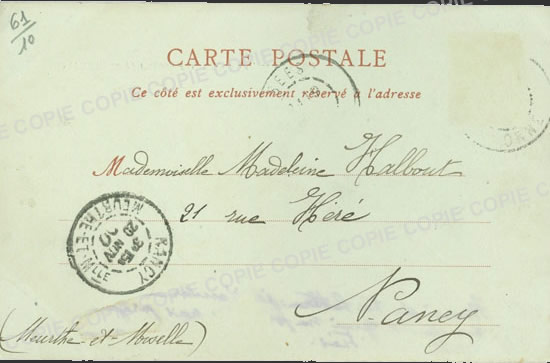 61/10
CARTE POSTALE
Ce côté est exclusivement réservé à l'adresse
Mademoiselle Madeleine Halbout
21 rue Héré
Nancy
(Meurthe-et-Moselle)
NANCY
MEURTHE-ET-MLLE
NOV
COPIE COPIE COPIE COPIE COPIE